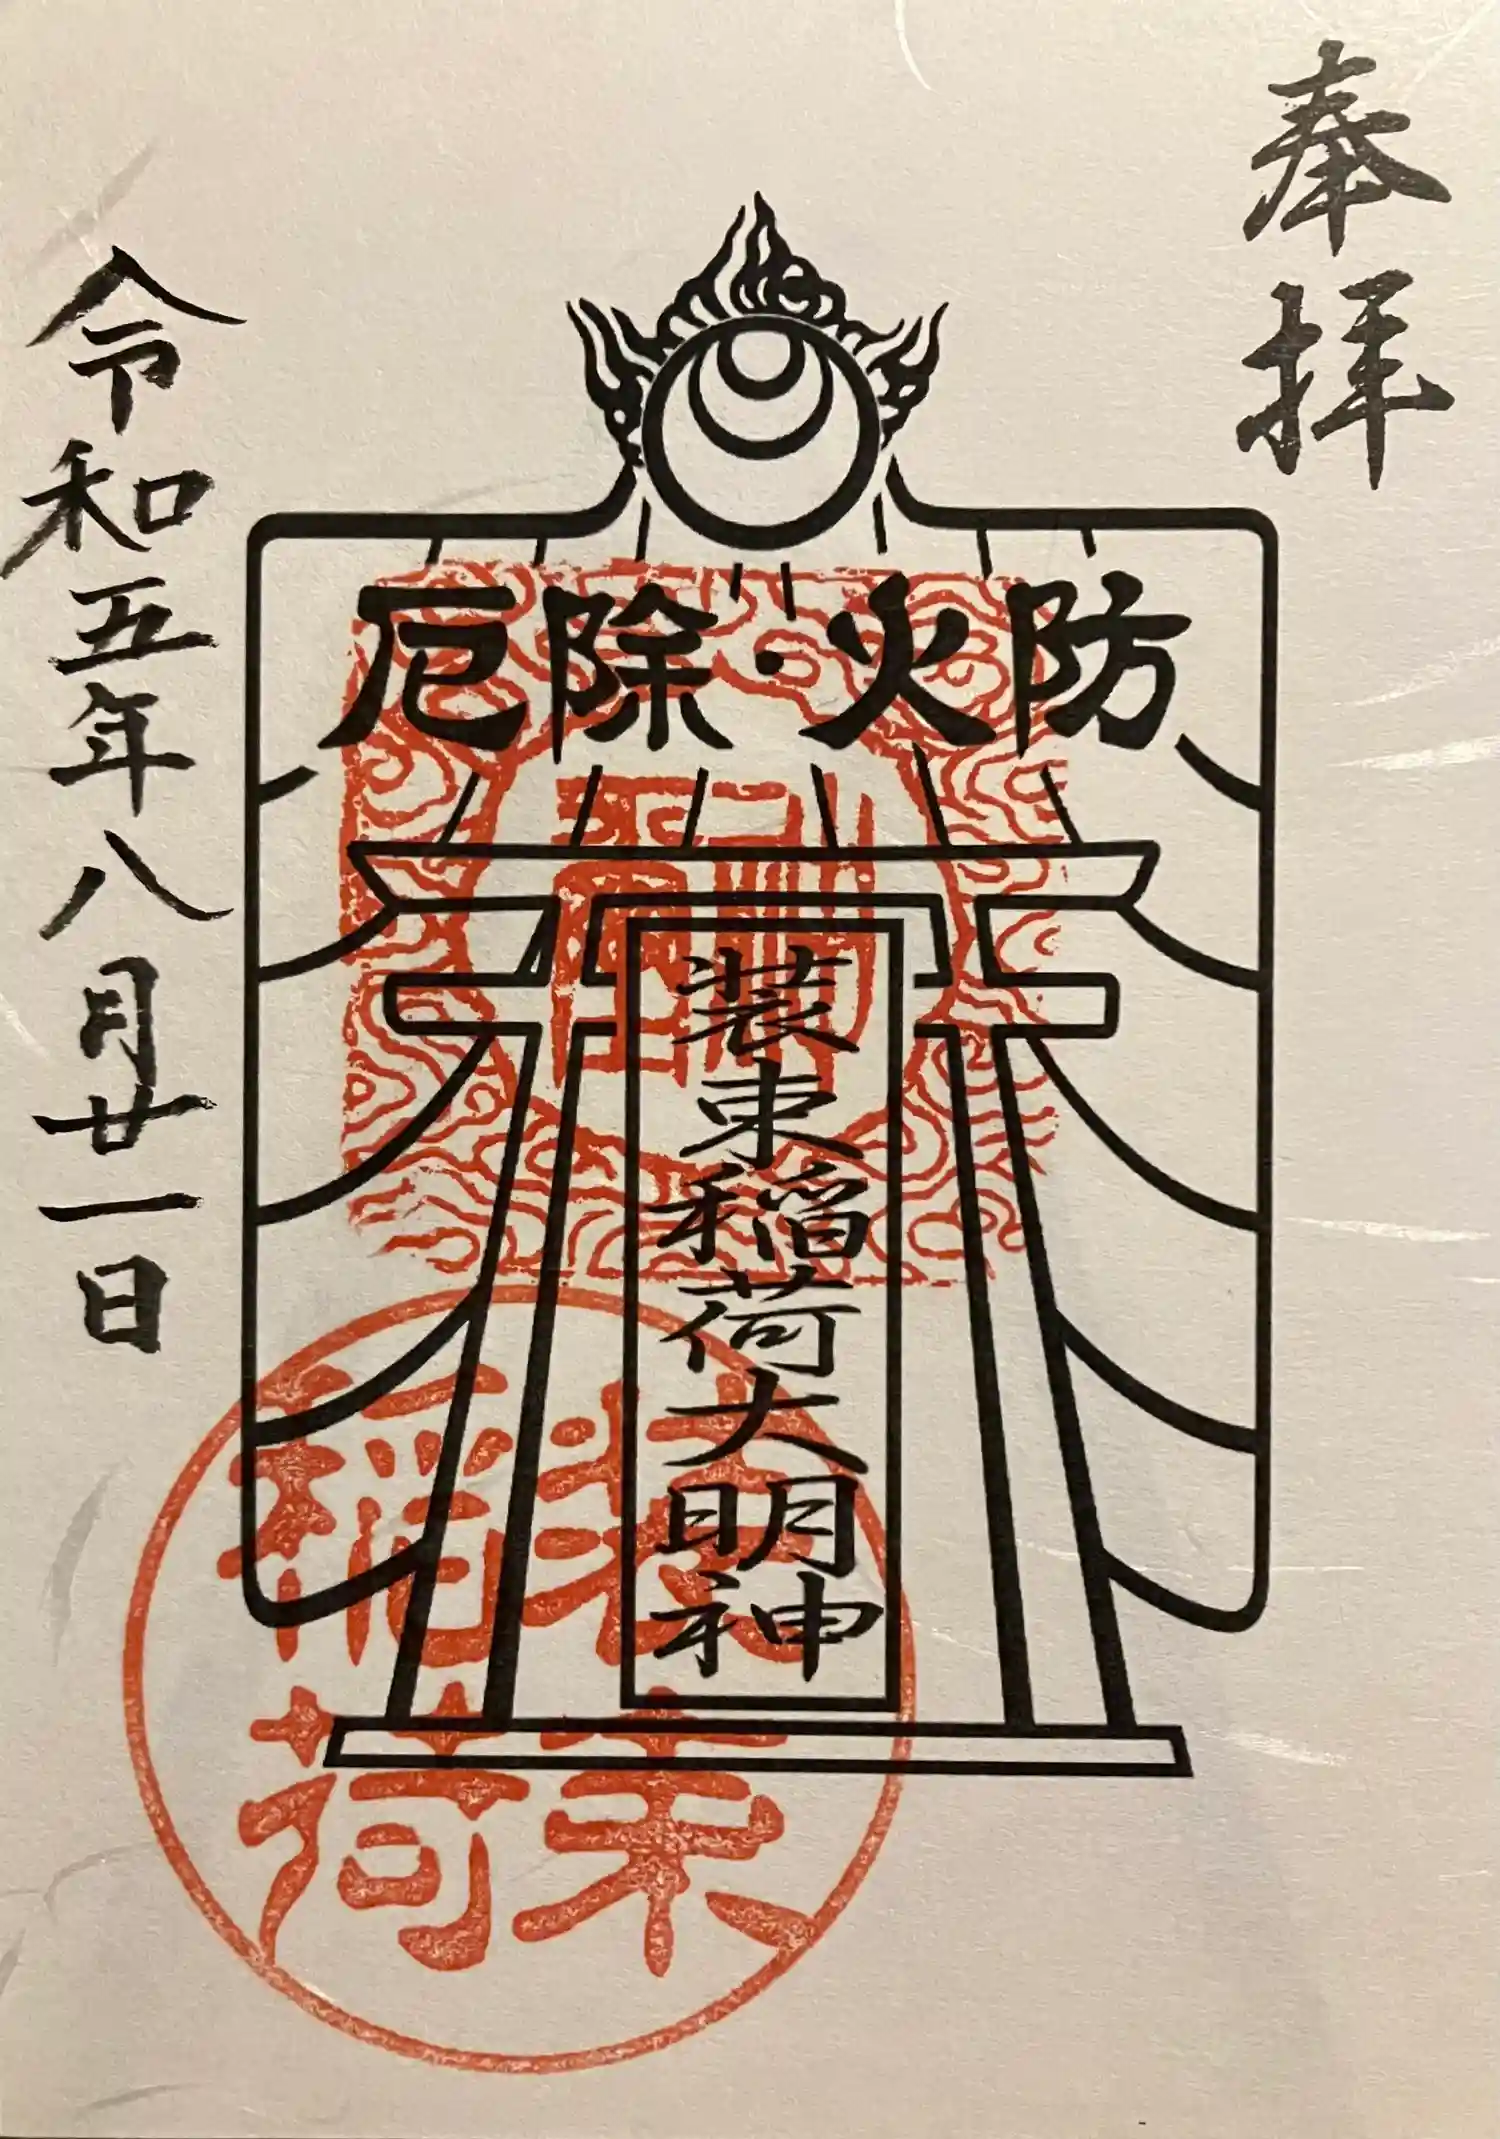 奉拝
厄除・火防
装束稲荷大明神
装束
稲荷
令和五年八月廿一日